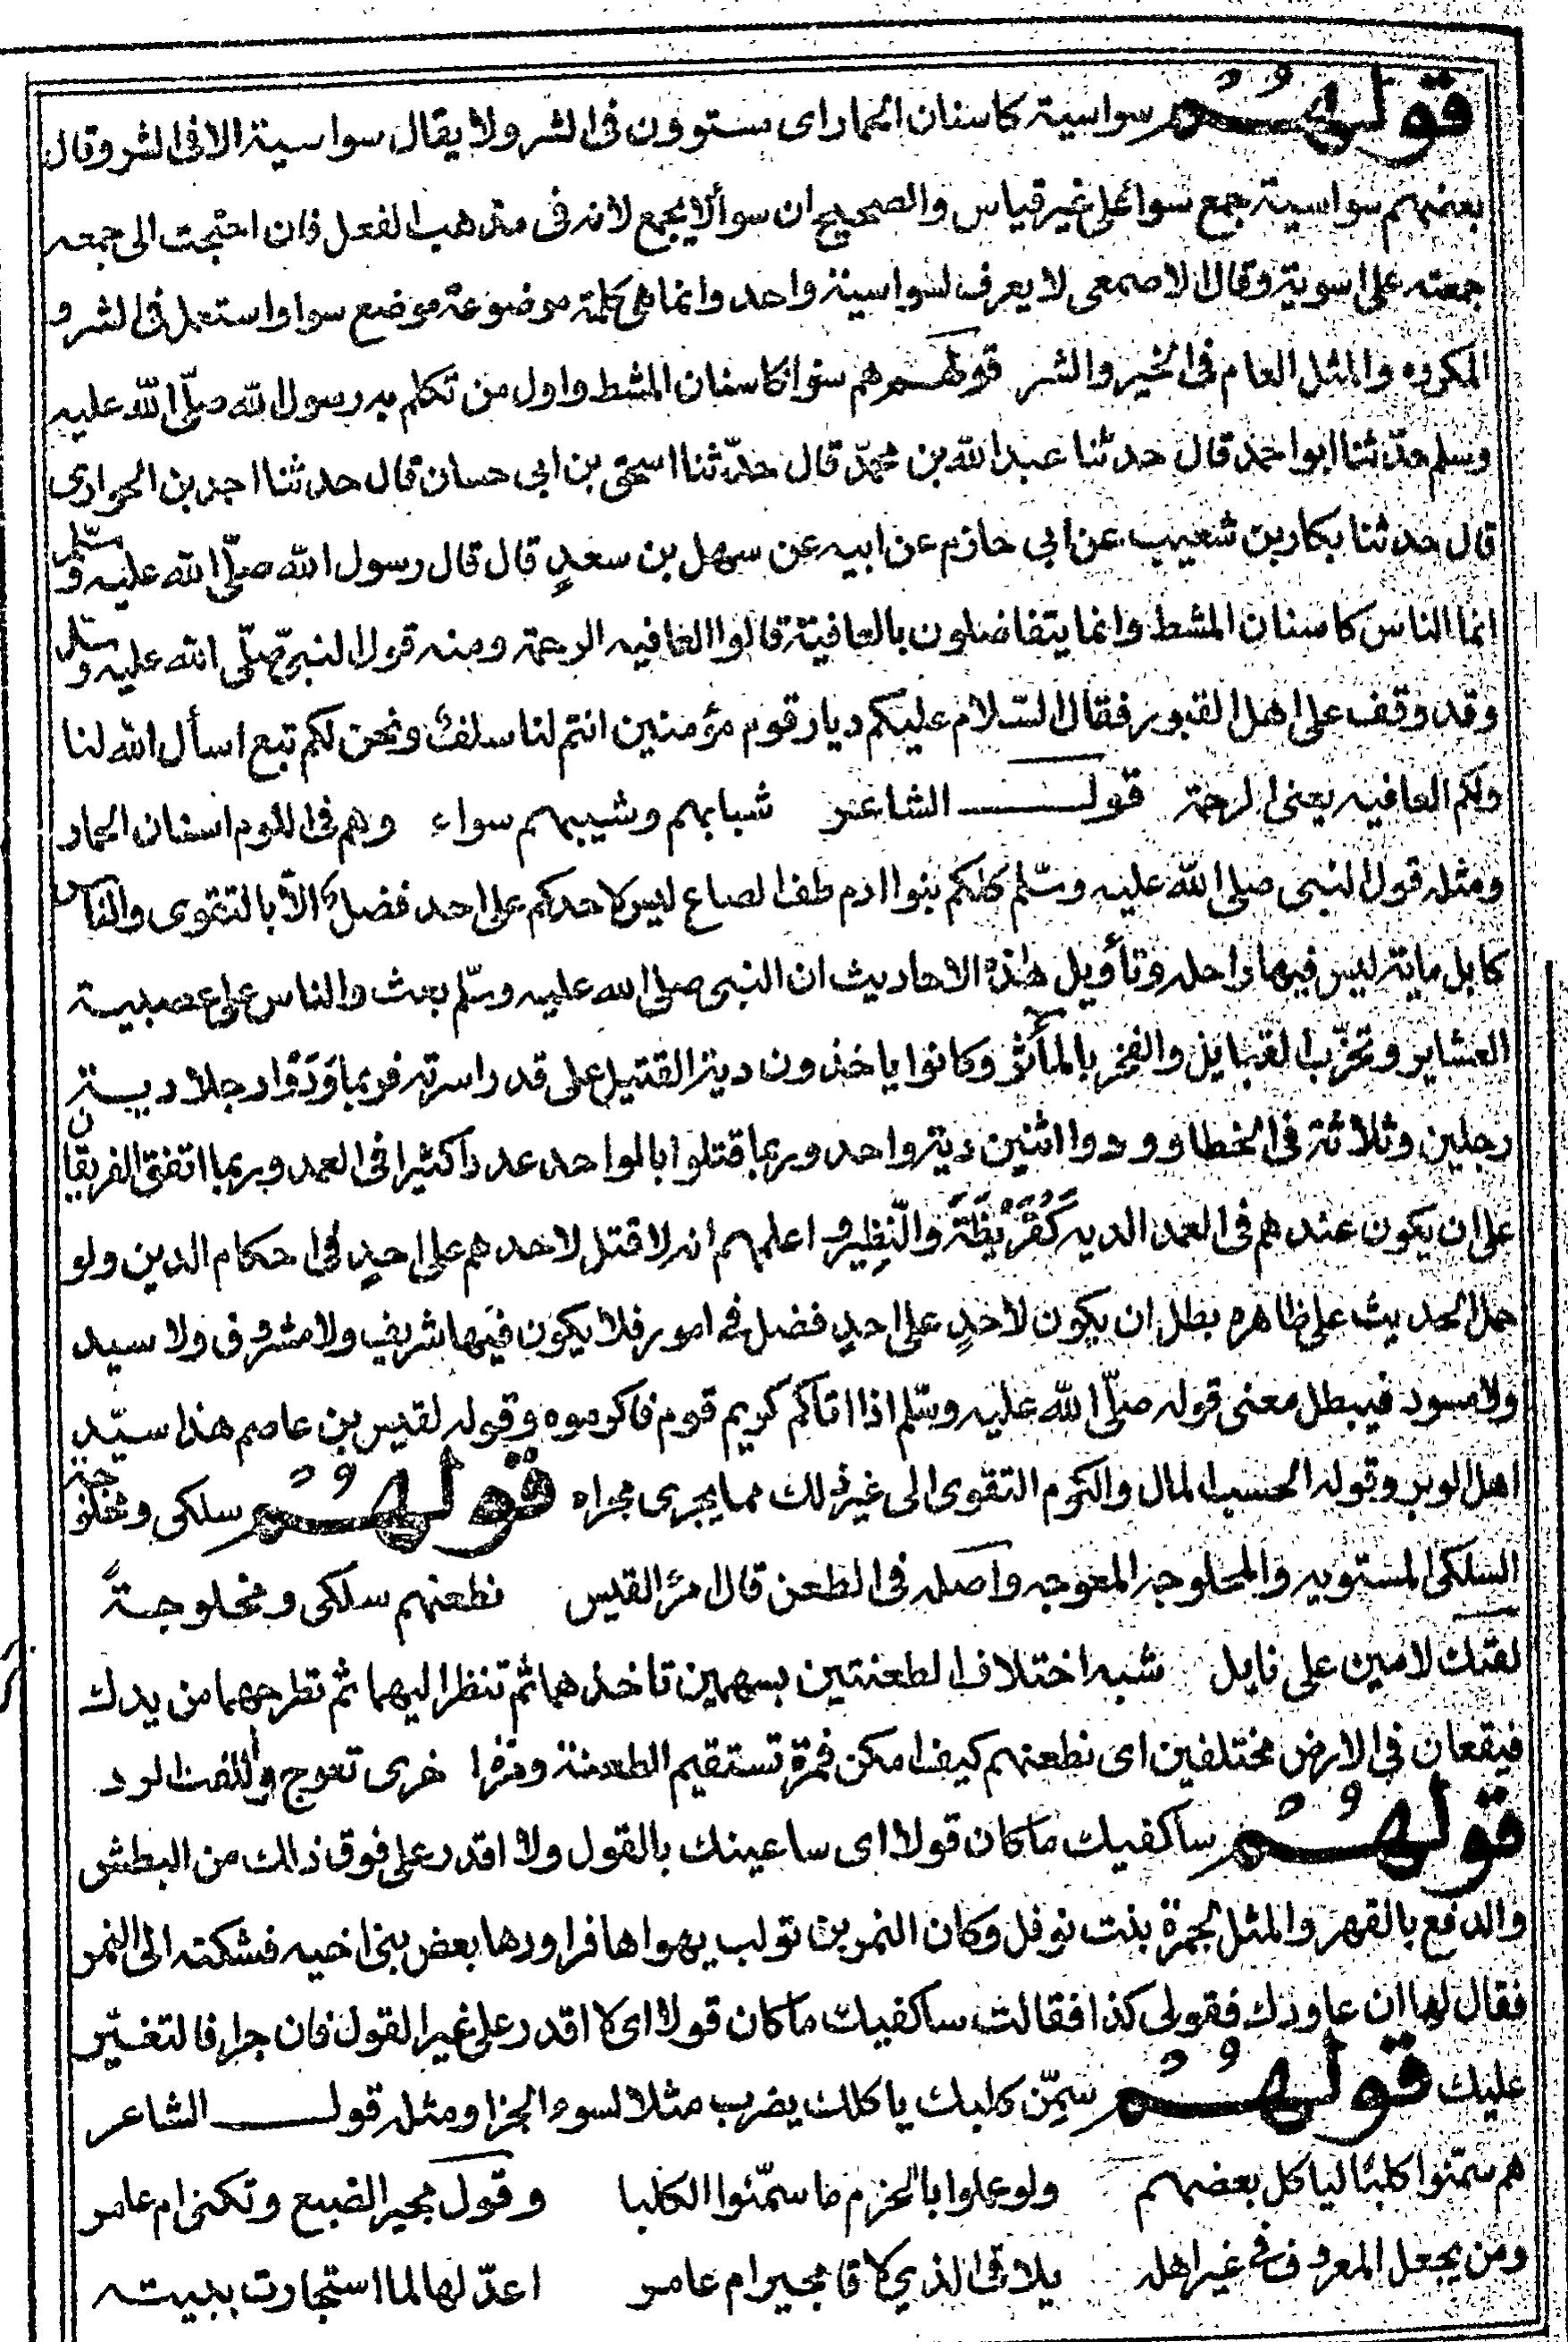 قولهُم سواسية كاسنان الحمار اى مستوون فى الشر ولا يقال سواسية الا فى الشر وقال
بعضهم سواسية جمع سوا على غير قياس والصحيح ان سوا لا يجمع لانه فى مذهب الفعل فان احتجت الى جمعه
جمعته على اسوية وقال الاصمعى لا يعرف لسواسية واحد وانما هى كلمة موضوعة موضع سوا واستعمل فى الشر و
المكروه والمثل العام فى الخير والشر قولهم هم سوا كاسنان المشط واول من تكلم به رسول الله صلّى الله عليه
وسلم حدّثنا ابو احمد قال حدثنا عبد الله بن محمّد قال حدّثنا اسحق بن ابى حسان قال حدثنا احمد بن الحوارى
قال حدثنا بكار بن شعيب عن ابى حازم عن ابيه عن سهل بن سعدٍ قال قال رسول الله صلّى الله عليه وسلّم
انما الناس كاسنان المشط وانما يتفاضلون بالعافية قالوا العافيه الرحمة ومنه قول النبىّ صلّى الله عليه وسلم
وقد وقف على اهل القبور فقال السّلام عليكم ديار قوم مؤمنين انتم لنا سلفٌ ونحن لكم تبع اسأل الله لنا
ولكم العافيه يعنى الرحمة قول الشاعر شبابهم وشيبهم سواء وهم فى اللوم اسنان الحمار
ومثله قول النبى صلى الله عليه وسّلم كلكم بنوا ادم طف الصاع ليس لاحدكم على احد فضلٌ الاّ بالتقوى والناس
كابل ماية ليس فيها راحله وتأويل هذه الاحاديث ان النبى صلى الله عليه وسلّم بعث والناس على عصبية
العشاير وتحزّب القبايل والفخر بالمأثر وكانوا ياخذون دية القتيل على قدر اسرته فربما وَدَوْا رجلا دية
رجلين وثلاثة فى الخطا وودوا اثنين دية واحد وربما قتلوا بالواحد عددا كثيرا فى العمد وربما اتفق الفريقان
على ان يكون عندهم فى العمد الديه كَقُرَيْظَةَ والنّظِير واعلمهم انه لا قتل لاحدهم على احدٍ فى احكام الدين ولو
حمل الحديث على ظاهره بطل ان يكون لأحدٍ على احدٍ فضل فى امور فلا يكون فيها شريف ولا مشروف ولا سيد
ولا مسود فيبطل معنى قوله صلّى الله عليه وسّلم اذا اتاكم كريم قوم فاكرموه وقوله لقيس بن عاصم هذا سيّد
اهل الوبر وقوله الحسب المال والكرم التقوى الى غير ذلك مما يجرى مجراه قولهُم سلكى ومخلوجة
السلكى المستويه والمخلوجه المعوجه واصله فى الطعن قال امرؤ القيس نطعنهم سلكى ومخلوجةً
لفتك لامين على نابل شبه اختلاف الطعنتين بسهمين تاخذهما ثم تنظر اليهما ثم تطرحهما من يدك
فيقعان فى الارض مختلفين اى نطعنهم كيف امكن فمرة تستقيم الطعنة ومرة اخرى تعوج واللفت الرد
قولهُم ساكفيك ما كان قولا اى ساعينك بالقول ولا اقدر على فوق ذلك من البطش
والدفع بالقهر والمثل لجمرة بنت نوفل وكان النمر بن تولب يهواها فراودها بعض بنى اخيه فشكته الى النمر
فقال لها ان عاودك فقولى كذا فقالت ساكفيك ما كان قولا اى لا اقدر على غير القول فان جار فالتغيّر
عليك قولهُم سمّن كلبك ياكلك يضرب مثلا لسوء الجزا ومثله قول الشاعر
هم سمّنوا كلبًا لياكل بعضهم ولو عملوا بالحزم ما سمّنوا الكلبا وقول مجير الضبع وتكنى ام عامر
ومن يجعل المعروف فى غير اهله يلاقى الذي لاقا مجير ام عامر اعدّ لها لما استجارت ببيته